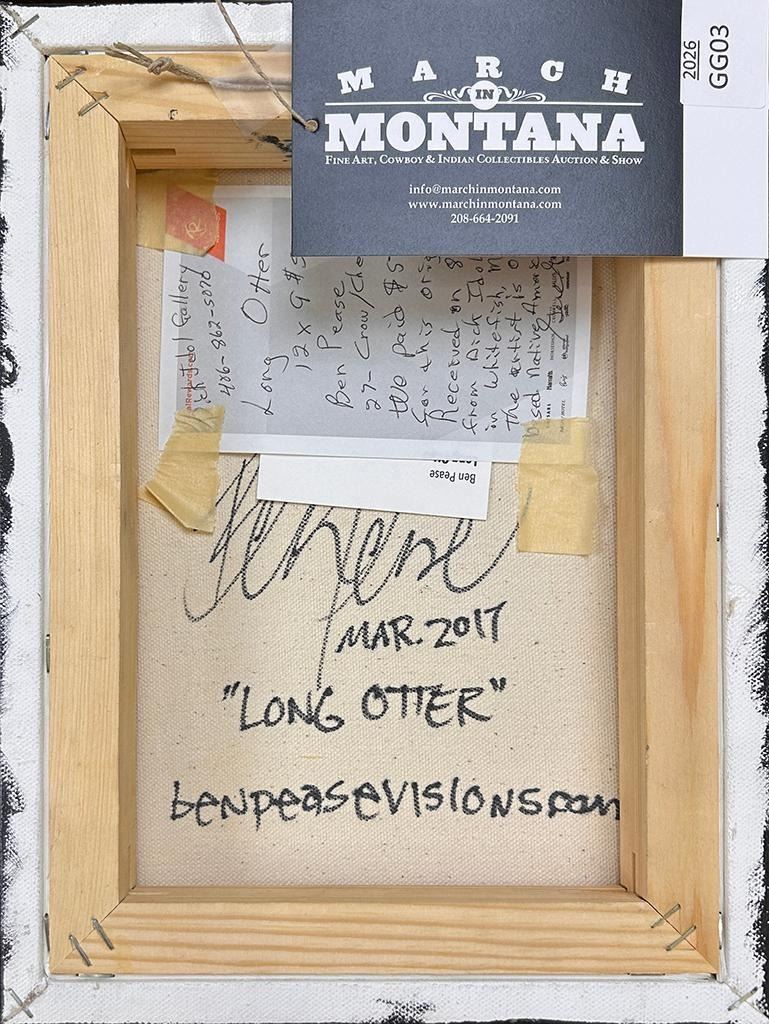 MARCH
IN
MONTANA
FINE ART, COWBOY & INDIAN COLLECTIBLES AUCTION & SHOW
info@marchinmontana.com
www.marchinmontana.com
208-664-2091
2026
GG03
Idol Gallery
406-862-5070
Long Otter
12 x 9 $
Ben Pease
27- Crow/Che
We Paid $5
for this orig
Received on 8
from Dick Idol
in Whitefish, M
the artist is o
based Native Amer
Ben Pease
Ben Pease
MAR. 2017
"LONG OTTER"
benpeasevisions.com